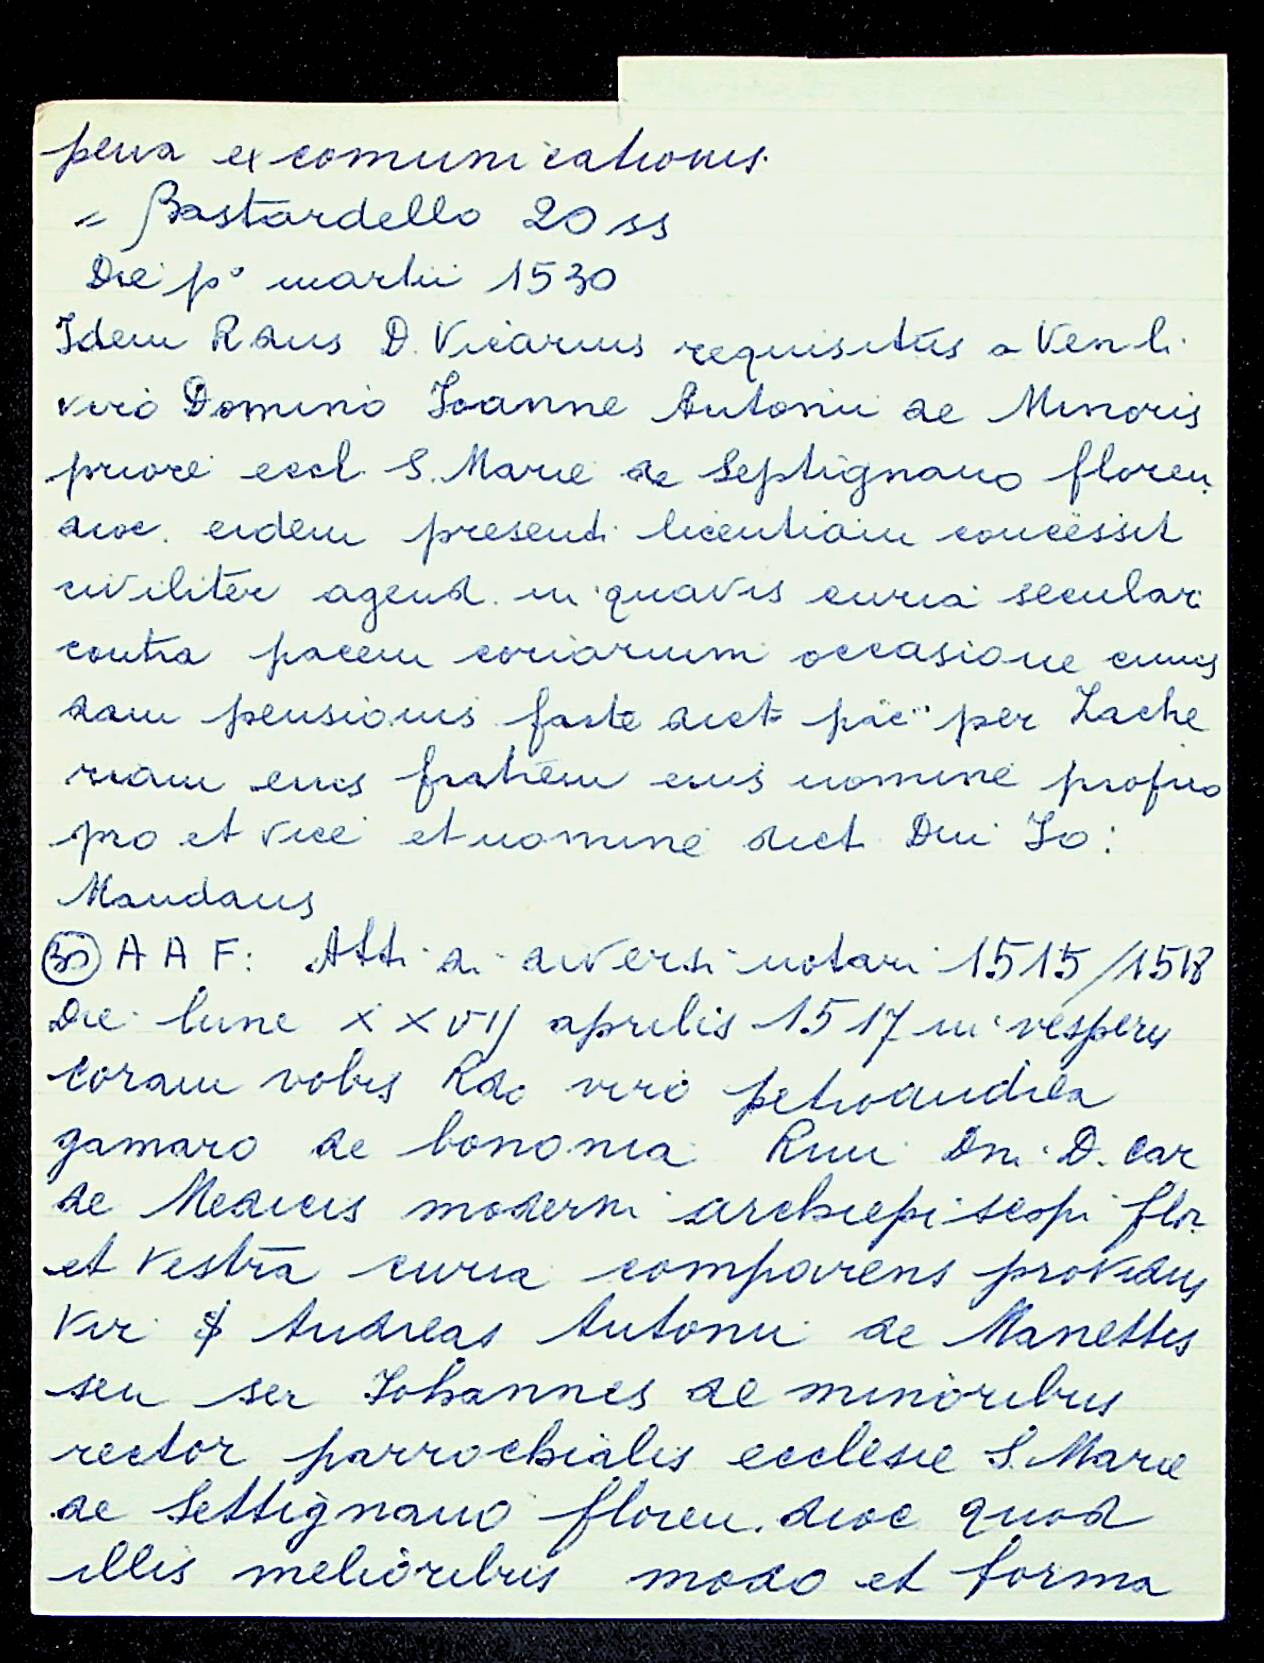 pena excomunicationis.
= Bastardello 20 ss
Die p° martii 1530
Idem Rdus D. Vicarius requisitus a Ven li.
viro Domino Joanne Antonii de Minoris
priore eccl. S. Marie de Septignano floren.
dioc. eidem presenti licentiam concessit
civiliter agend. in quavis curia secular.
contra pacem coriarium occasione cuius
dam pensionis facte dict pac" per Zache
riam eius fratrem eius nomine proprio
pro et vice et nomine dict. Dni Jo:
Mandans
30 A A F: Atti di diversi notari 1515/1518
Die lune XXVIJ aprilis 1517 in vesperis
Coram vobis Rdo viro petroandrea
gamaro de bononia Rmi Dni D. Car
de Medicis moderni archiepiscopi flor.
et vestra curia comparens providus
Vir Andreas Antonii de Manettis
seu ser Johannes de minoribus
rector parrochialis ecclesie S. Marie
de Settignano floren. dioc quod
illis melioribus modo et forma